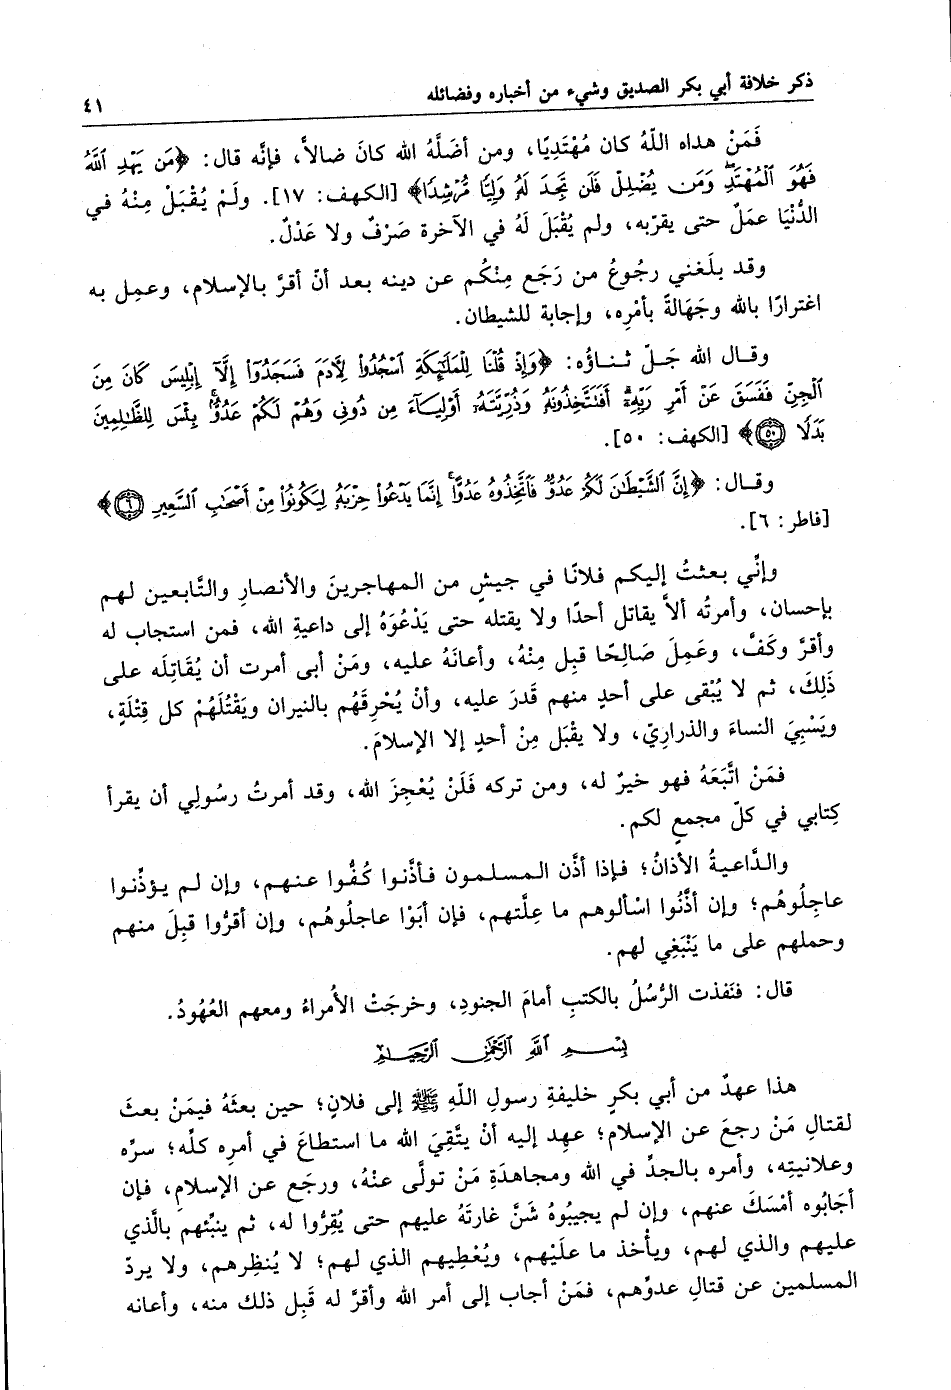 ذكر خلافة أبي بكر الصديق وشيء من أخباره وفضائله ٤١
فَمَنْ هداه اللّهُ كان مُهْتَدِيًا، ومن أضَلَّهُ الله كانَ ضالاً، فإنَّه قال: ﴿مَن يَهْدِ ٱللَّهُ
فَهُوَ ٱلْمُهْتَدِ وَمَن يُضْلِلْ فَلَن تَجِدَ لَهُۥ وَلِيًّا مُّرْشِدًا﴾ [الكهف: ١٧]. ولَمْ يُقْبَلْ مِنْهُ في
الدُّنْيَا عمَلٌ حتى يقرّبه، ولم يُقْبَلَ لَهُ في الآخرة صَرْفٌ ولا عَدْلٌ.
وقد بلَغني رجُوعُ من رَجَع مِنْكُم عن دينه بعد أنْ أقرَّ بالإسلام، وعمِل به
اغترارًا بالله وجَهَالةً بأمْرِه، وإجابة للشيطان.
وقـال الله جَـلّ ثـنـاؤُه: ﴿وَإِذْ قُلْنَا لِلْمَلَٰٓئِكَةِ ٱسْجُدُوا۟ لِءَادَمَ فَسَجَدُوٓا۟ إِلَّآ إِبْلِيسَ كَانَ مِنَ
ٱلْجِنِّ فَفَسَقَ عَنْ أَمْرِ رَبِّهِۦٓ أَفَتَتَّخِذُونَهُۥ وَذُرِّيَّتَهُۥٓ أَوْلِيَآءَ مِن دُونِى وَهُمْ لَكُمْ عَدُوٌّۢ بِئْسَ لِلظَّٰلِمِينَ
بَدَلًا ٥٠﴾ [الكهف: ٥٠].
وقـال: ﴿إِنَّ ٱلشَّيْطَٰنَ لَكُمْ عَدُوٌّ فَٱتَّخِذُوهُ عَدُوًّا إِنَّمَا يَدْعُوا۟ حِزْبَهُۥ لِيَكُونُوا۟ مِنْ أَصْحَٰبِ ٱلسَّعِيرِ ٦﴾
[فاطر: ٦].
وإنِّي بعثتُ إليكم فلانًا في جيشٍ من المهاجرينَ والأنصارِ والتَّابعين لهم
بإحسان، وأمرتُه ألاَّ يقاتل أحدًا ولا يقتله حتى يَدْعُوَهُ إلى داعيةِ الله، فمن استجاب له
وأقرَّ وكَفَّ، وعَمِلَ صَالِحًا قبِل مِنْهُ، وأعانَهُ عليه، ومَنْ أبى أمرت أن يُقَاتِلَه على
ذَلِكَ، ثم لا يُبْقى على أحدٍ منهم قَدَرَ عليه، وأنْ يُحْرِقَهُم بالنيران ويَقْتُلَهُمْ كل قِتْلَةٍ،
ويَسْبِيَ النساءَ والذراريّ، ولا يقْبَل مِنْ أحدٍ إلا الإسلامَ.
فمَنْ اتَّبَعَهُ فهو خيرٌ له، ومن تركه فَلَنْ يُعْجِزَ الله، وقد أمرتُ رسُولِي أن يقرأ
كِتابي في كلّ مجمعٍ لكم.
والـدَّاعيـةُ الأذانُ؛ فـإذا أذَّن الـمسلـمون فـأذَّنوا كُفُّوا عنـهم، وإن لم يـؤذِّنـوا
عاجِلُوهُم؛ وإن أذَّنُوا اسْألوهم ما عِلَّتهم، فإن أبَوْا عاجلُوهُم، وإن أقرُّوا قبِلَ منهم
وحملهم على ما يَنْبَغِي لهم.
قال: فنَفذت الرُّسُلُ بالكتبِ أمامَ الجنودِ، وخرجَتْ الأُمراءُ ومعهم العُهُودُ.
بِسْمِ ٱللَّهِ ٱلرَّحْمَٰنِ ٱلرَّحِيمِ
هذا عهدٌ من أبي بكرٍ خليفةِ رسولِ اللّهِ ﷺ إلى فلانٍ؛ حين بعثَهُ فيمَنْ بعثَ
لقتالِ مَنْ رجعَ عن الإسلام؛ عهِد إليه أنْ يتَّقِيَ الله ما استطاعَ في أمرِه كلِّه؛ سرِّه
وعلانيتِه، وأمره بالجدِّ في الله ومجاهدَةِ مَنْ تولَّى عنْهُ، ورجَع عن الإسلامِ، فإن
أجابُوه أمْسَكَ عنهم، وإن لم يجيبُوهُ شَنَّ غارتَهُ عليهم حتى يُقِرُّوا له، ثم ينبِّئهم بالَّذي
عليهم والذي لهم، ويأْخذ ما علَيْهم، ويُعْطِيهم الذي لهم؛ لا يُنظِرهم، ولا يردّ
المسلمين عن قتالِ عدوِّهم، فمَنْ أجاب إلى أمرِ الله وأقرَّ له قَبِل ذلك منه، وأعانه